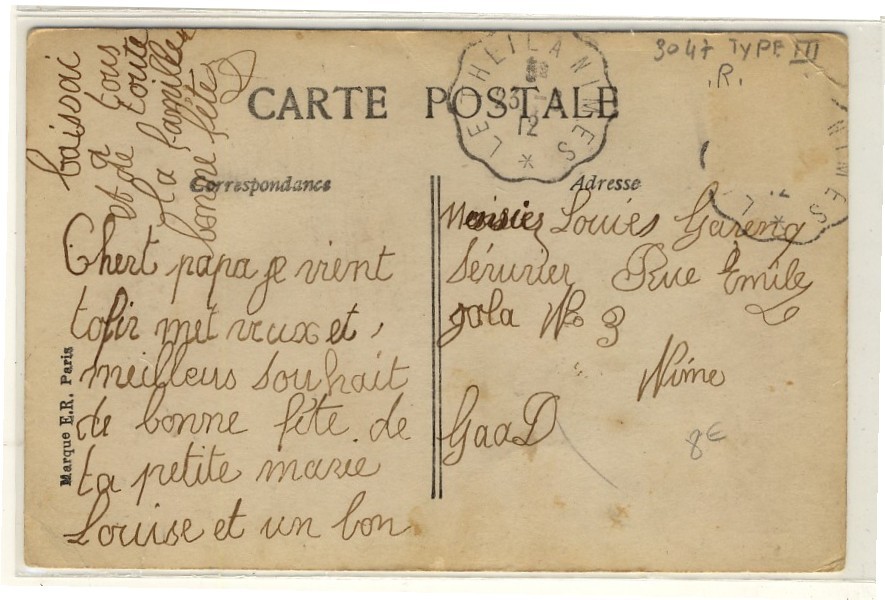 3047 TYPE III
.R.
CARTE POSTALE
LE VHEIL A NIMES *
23
12
NIMES * L
Correspondance
Adresse
Chert papa je vient
tofir met veux et
meilleus souhait
de bonne fête de
ta petite marie
Louise et un bon
baissai
a tous
et de toute
la famille
bonne fête
Louies Gareng
Sérurier Rue Emile
zola No 3
Nime
GaaD
8€
Marque E.R. Paris